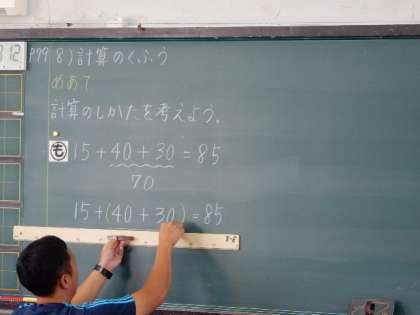 P79 8)計算のくふう
めあて
計算のしかたを考えよう。
も 15+40+30=85
70
15+(40+30)=85